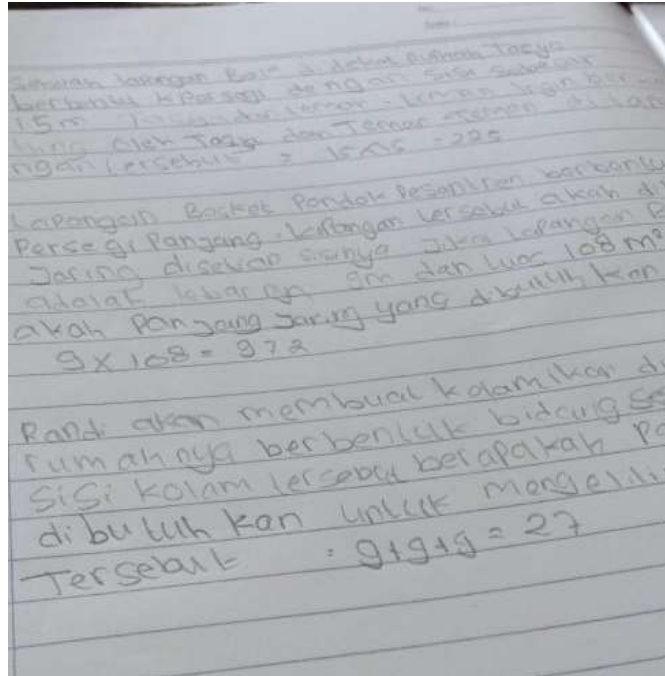 lapangan Bola di dekat Rumah Tasya
berbentuk Persegi dengan sisi
15m teman-teman
oleh Tasya dan Teman-Temen di
tersebut = 15×15 = 225
Lapangan Basket Pondok Pesantren berbentu
Persegi Panjang. Lapangan tersebut akan di
Jaring disetiap sisinya Jika Lapangan B
adalah lebarnya 9m dan luas 108 m²
akah Panjang Jaring yang dibutuhkan
9×108 = 972
Randi akan membuat kolam ikan di
rumahnya berbentuk bidang Se
Sisi kolam tersebut berapakah Pa
dibutuhkan untuk mengelili
Tersebut : 9+9+9 = 27